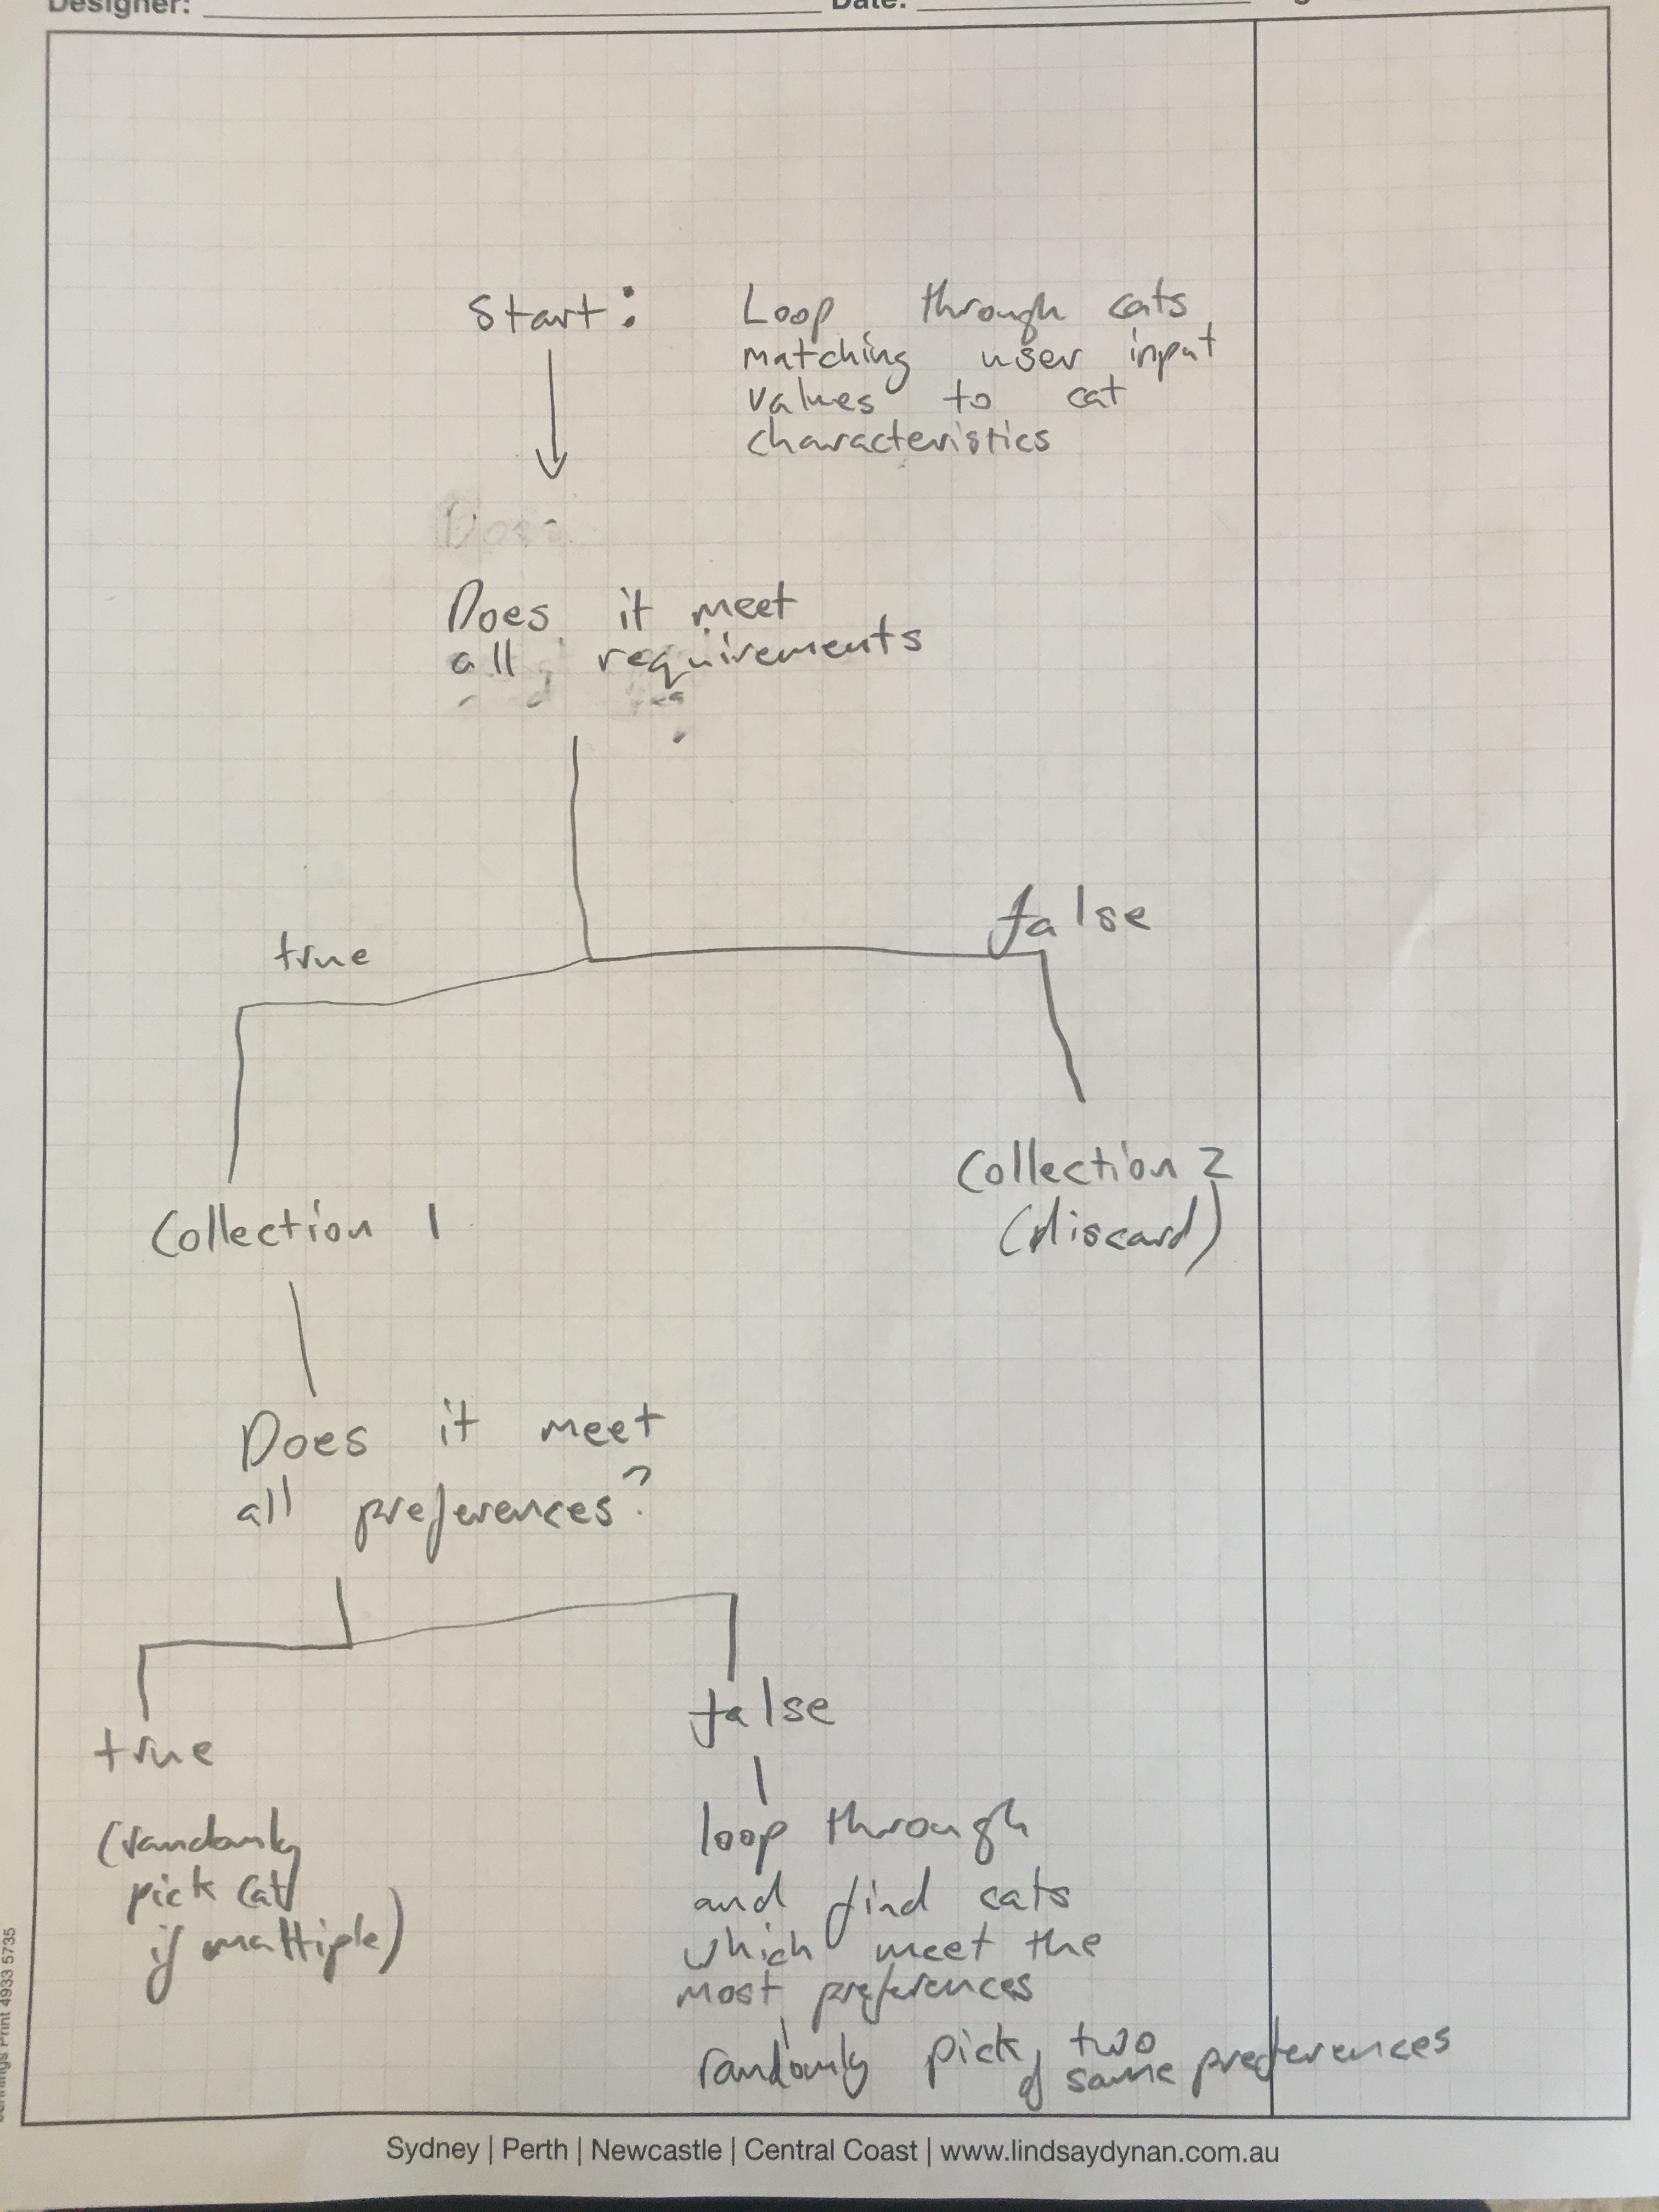 Designer: Date:
Start:
Loop through cats
matching user input
values to cat
characteristics
Does it meet
all requirements
true
false
Collection 1
Collection 2
(discard)
Does it meet
all preferences?
true
false
(randomly
pick cat
if multiple)
loop through
and find cats
which meet the
most preferences
randomly pick, two
of same preferences
Print 4933 5735
Sydney | Perth | Newcastle | Central Coast | www.lindsaydynan.com.au